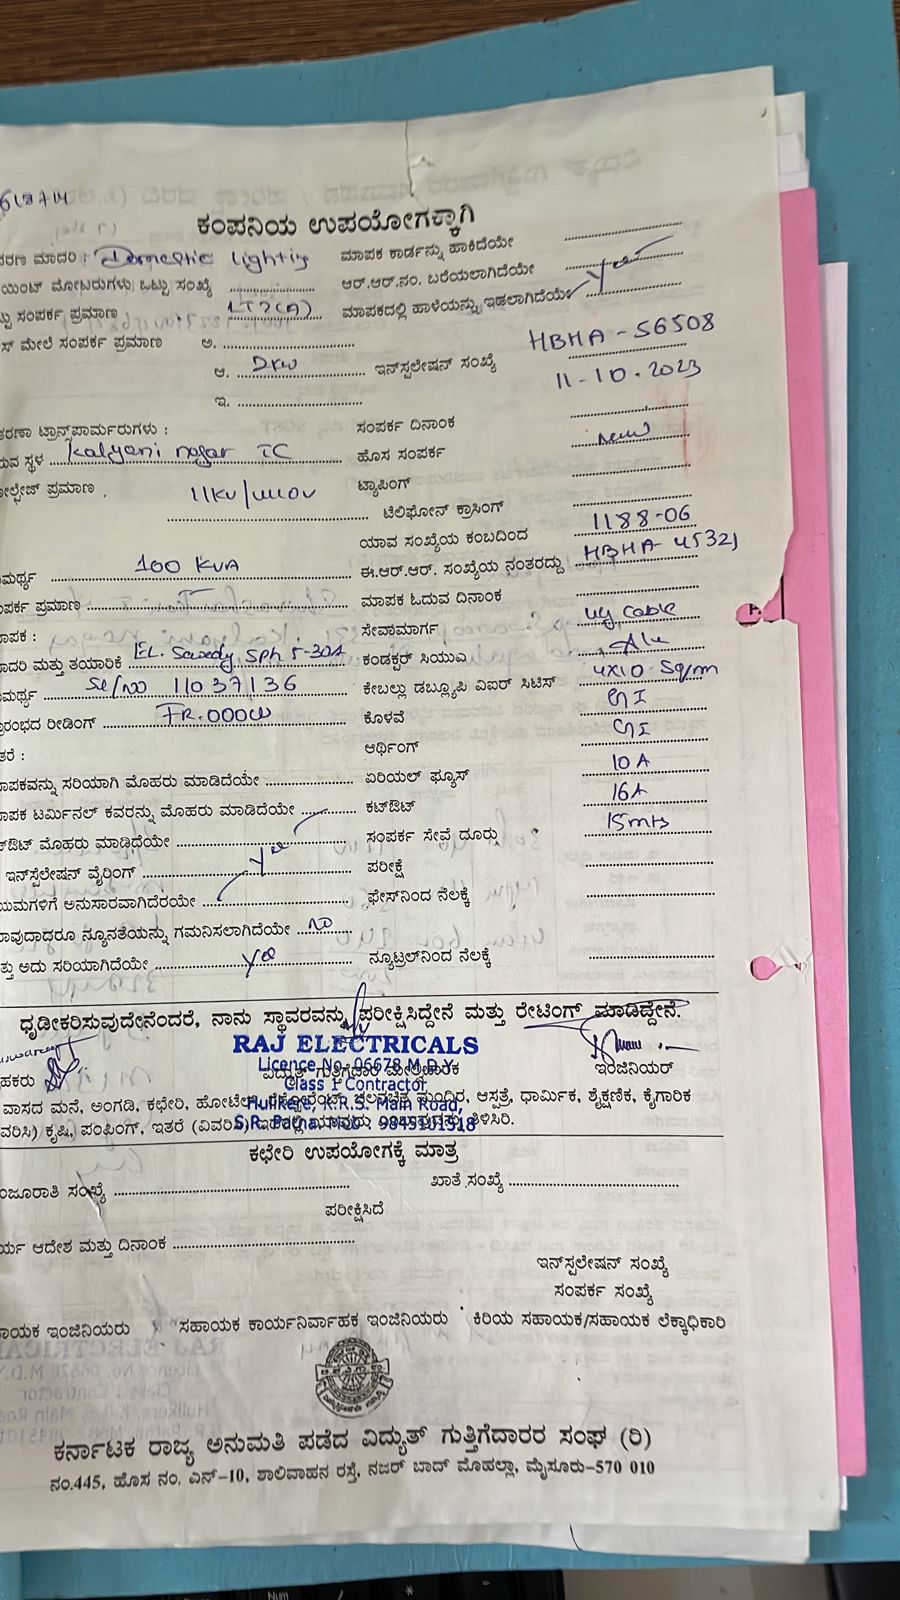 618714
ಕಂಪನಿಯ ಉಪಯೋಗಕ್ಕಾಗಿ
ಮಾದರಿ : Domestic lighting ಮಾಪಕ ಕಾರ್ಡನ್ನು ಹಾಕಿದೆಯೇ
ಮೋಟರುಗಳು ಒಟ್ಟು ಸಂಖ್ಯೆ ಆರ್.ಆರ್.ನಂ. ಬರೆಯಲಾಗಿದೆಯೇ Yes
ಸಂಪರ್ಕ ಪ್ರಮಾಣ LT2(A) ಮಾಪಕದಲ್ಲಿ ಹಾಳೆಯನ್ನು ಇಡಲಾಗಿದೆಯೇ
ಮೇಲೆ ಸಂಪರ್ಕ ಪ್ರಮಾಣ ಅ.
ಆ. 2KW ಇನ್‌ಸ್ಟಲೇಷನ್ ಸಂಖ್ಯೆ HBHA-56508
ಇ. 11-10-2023
ಟ್ರಾನ್ಸ್‌ಪಾರ್ಮರುಗಳು : ಸಂಪರ್ಕ ದಿನಾಂಕ
ಸ್ಥಳ Kalyani nagar TC ಹೊಸ ಸಂಪರ್ಕ New
ಪ್ರಮಾಣ 11KV/440V ಟ್ಯಾಪಿಂಗ್
ಟೆಲಿಫೋನ್ ಕ್ರಾಸಿಂಗ್
ಯಾವ ಸಂಖ್ಯೆಯ ಕಂಬದಿಂದ 1188-06
100 KVA ಈ.ಆರ್.ಆರ್. ಸಂಖ್ಯೆಯ ನಂತರದ್ದು HBHA-45321
ಪ್ರಮಾಣ ಮಾಪಕ ಓದುವ ದಿನಾಂಕ
ಸೇವಾಮಾರ್ಗ ug cable
ಮತ್ತು ತಯಾರಿಕೆ EL. Sewedy Sph 5-30A ಕಂಡಕ್ಟರ್ ಸಿಯುವಿ Alu
Sl/no 11037136 ಕೇಬಲ್ಲು ಡಬ್ಲ್ಯೂಪಿ ವಿಐರ್ ಸಿಟಿಸ್ 4x10 Sq/m
ರೀಡಿಂಗ್ FR.0000 ಕೊಳವೆ GI
ಆರ್ಥಿಂಗ್ GI
ಸರಿಯಾಗಿ ಮೊಹರು ಮಾಡಿದೆಯೇ ಏರಿಯಲ್ ಫ್ಯೂಸ್ 10A
ಟರ್ಮಿನಲ್ ಕವರನ್ನು ಮೊಹರು ಮಾಡಿದೆಯೇ ಕಟ್‌ಔಟ್ 16A
ಮೊಹರು ಮಾಡಿದೆಯೇ ಸಂಪರ್ಕ ಸೇವೆ ದೂರು 15mts
ಇನ್‌ಸ್ಟೆಲೇಷನ್ ವೈರಿಂಗ್ Yes ಪರೀಕ್ಷೆ
ಅನುಸಾರವಾಗಿದೆರಯೇ ಫೇಸ್‌ನಿಂದ ನೆಲಕ್ಕೆ
ನ್ಯೂನತೆಯನ್ನು ಗಮನಿಸಲಾಗಿದೆಯೇ NO
ಅದು ಸರಿಯಾಗಿದೆಯೇ Yes ನ್ಯೂಟ್ರಲ್‌ನಿಂದ ನೆಲಕ್ಕೆ
ಧೃಡೀಕರಿಸುವುದೇನೆಂದರೆ, ನಾನು ಸ್ಥಾವರವನ್ನು ಪರೀಕ್ಷಿಸಿದ್ದೇನೆ ಮತ್ತು ರೇಟಿಂಗ್ ಮಾಡಿದ್ದೇನೆ.
RAJ ELECTRICALS
Licence No. 06678 M.D.Y.
ಇಂಜಿನಿಯರ್
Class 1 Contractor
ವಾಸದ ಮನೆ, ಅಂಗಡಿ, ಕಛೇರಿ, ಆಸ್ಪತ್ರೆ, ಧಾರ್ಮಿಕ, ಶೈಕ್ಷಣಿಕ, ಕೈಗಾರಿಕ
Hulikere, K.R.S. Main Road,
ಕೃಷಿ, ಪಂಪಿಂಗ್, ಇತರೆ ತಿಳಿಸಿರಿ.
S.R. Patna. Mob : 9845101518
ಕಛೇರಿ ಉಪಯೋಗಕ್ಕೆ ಮಾತ್ರ
ಸಂಖ್ಯೆ ಖಾತೆ ಸಂಖ್ಯೆ
ಪರೀಕ್ಷಿಸಿದೆ
ಆದೇಶ ಮತ್ತು ದಿನಾಂಕ
ಇನ್‌ಸ್ಟಲೇಷನ್ ಸಂಖ್ಯೆ
ಸಂಪರ್ಕ ಸಂಖ್ಯೆ
ಇಂಜಿನಿಯರು ಸಹಾಯಕ ಕಾರ್ಯನಿರ್ವಾಹಕ ಇಂಜಿನಿಯರು ಕಿರಿಯ ಸಹಾಯಕ/ಸಹಾಯಕ ಲೆಕ್ಕಾಧಿಕಾರಿ
ಕರ್ನಾಟಕ ರಾಜ್ಯ ಅನುಮತಿ ಪಡೆದ ವಿದ್ಯುತ್ ಗುತ್ತಿಗೆದಾರರ ಸಂಘ (ರಿ)
ನಂ.445, ಹೊಸ ನಂ. ಎನ್-10, ಶಾಲಿವಾಹನ ರಸ್ತೆ, ನಜರ್ ಬಾದ್ ಮೊಹಲ್ಲಾ, ಮೈಸೂರು-570 010